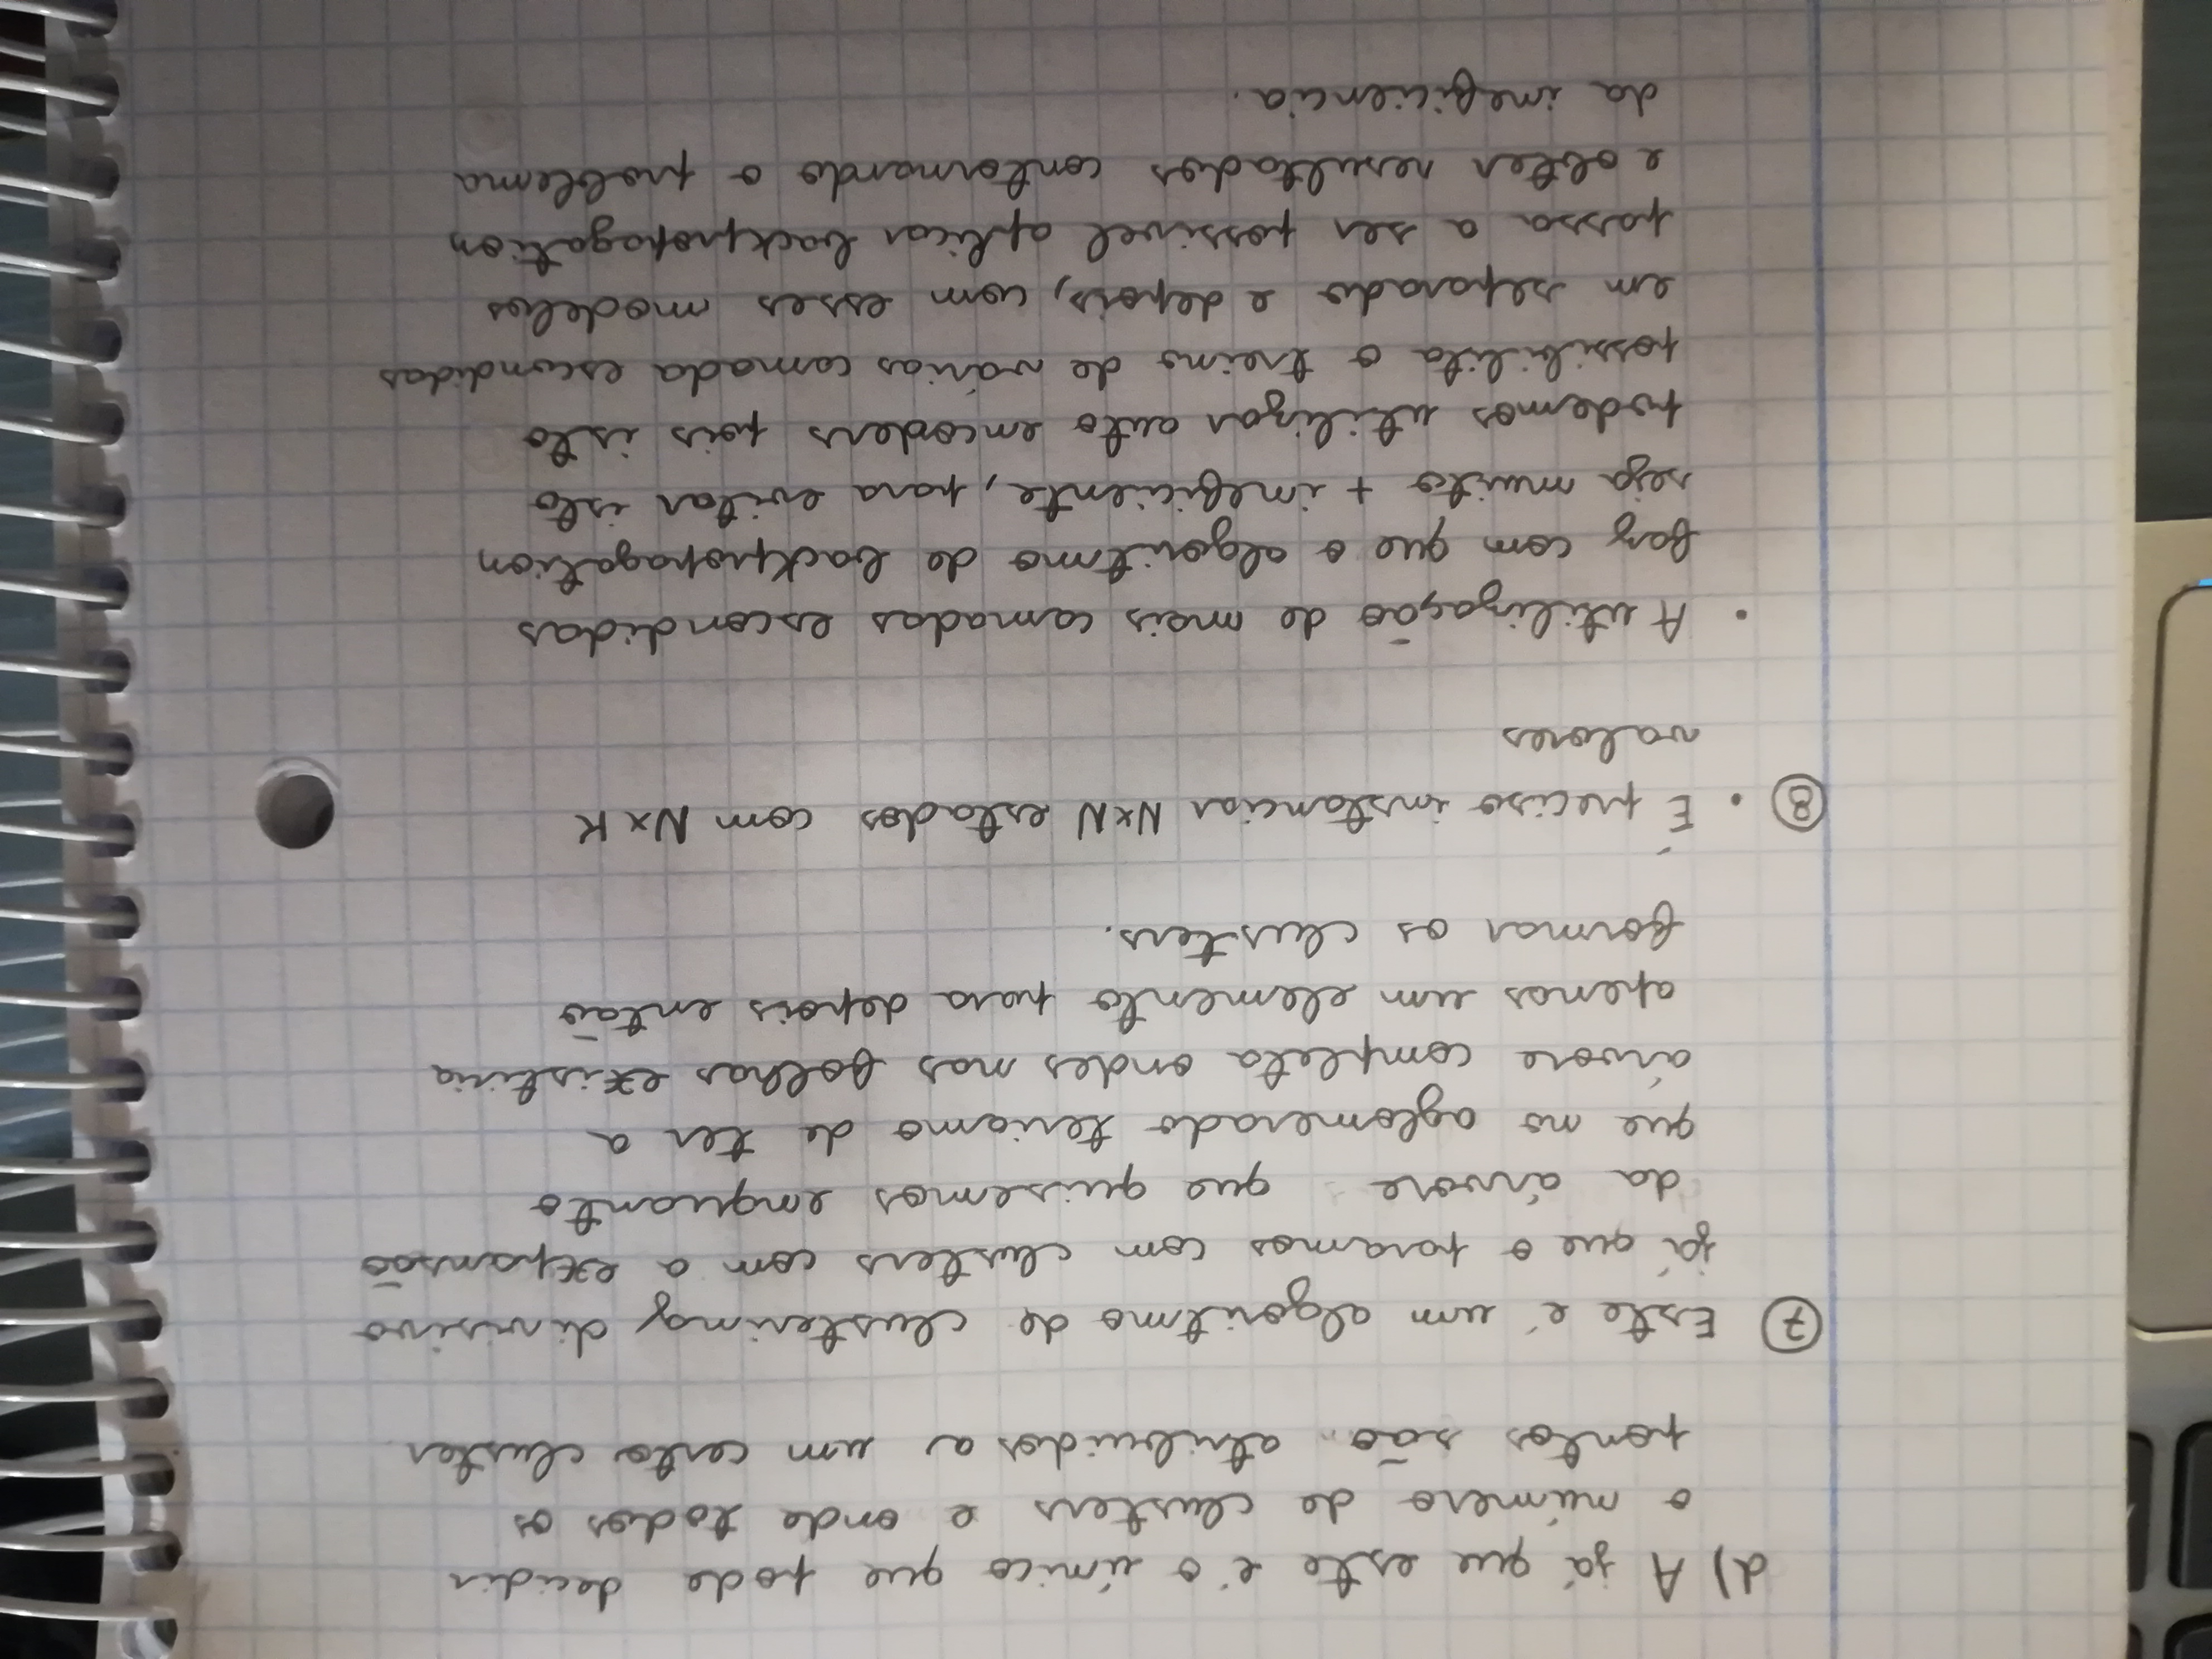 d) A já que este é o único que pode decidir
o número de clusters e onde todos os
pontos são atribuidos a um certo cluster
⑦ Este é um algoritmo de clustering divisivo
já que o paramos com clusters com a expansão
da árvore que quisemos enquanto
que no aglomerado teriamo de ter a
árvore completa ondes nas folhas existiria
apenas um elemento para depois então
formar os clusters.
⑧ • É preciso instanciar N×N estados com N×K
valores
• A utilização de mais camadas escondidas
faz com que o algoritmo de backpropagation
seja muito + ineficiente, para evitar isto
podemos utilizar auto encoders pois isto
possibilita o treino de várias camada escondidas
em separado e depois, com esses modelos
passa a ser possivel aplicar backpropagation
e obter resultados contornando o problema
da ineficiencia.